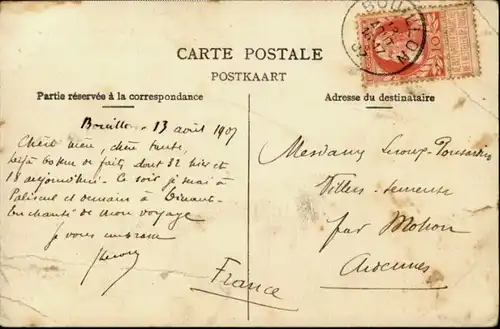 BOUILLON
CARTE POSTALE
POSTKAART
Partie réservée à la correspondance
Adresse du destinataire
Bouillon, 13 août 1907
chère tante,
déjà 60 km de faits, dont 32 hier et
18 aujourd'hui. Ce soir je suis à
Paliseul et demain à Dinant.
Enchanté de mon voyage
Je vous embrasse
France
Mesdames
Villers-Semeuse
par Mohon
Ardennes